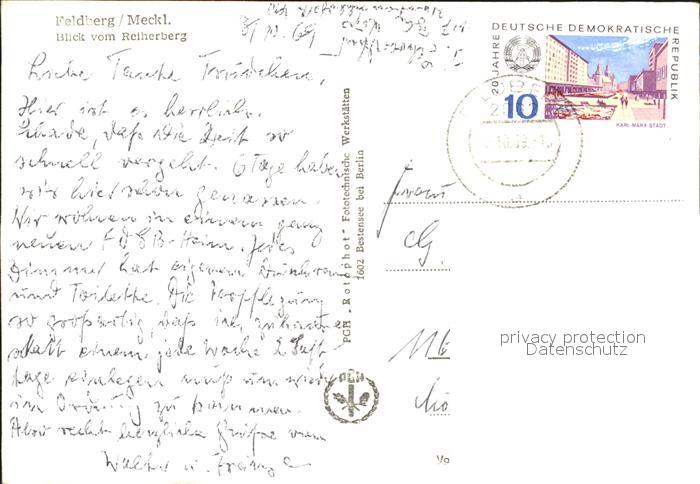 Feldberg / Meckl.
Blick vom Reiherberg
Liebe Tante Trudchen,
Hier ist es herrlich.
Schade, daß die Zeit so
schnell vergeht. 6 Tage haben
wir hier schon genossen.
Wir wohnen in einem ganz
neuen FDGB-Heim. Jedes
Zimmer hat eigenen Duschraum
und Toilette. Die Verpflegung
so großartig, daß ich zuhause
statt einem jede Woche 2 Saft-
tage einlegen muß um wieder
in Ordnung zu kommen.
Also recht herzliche Grüße von
Walter u.
PGH „Rotophot" Fototechnische Werkstätten
1602 Bestensee bei Berlin
PGH
20 JAHRE DEUTSCHE DEMOKRATISCHE REPUBLIK
10
KARL-MARX-STADT
Frau
privacy protection
Datenschutz